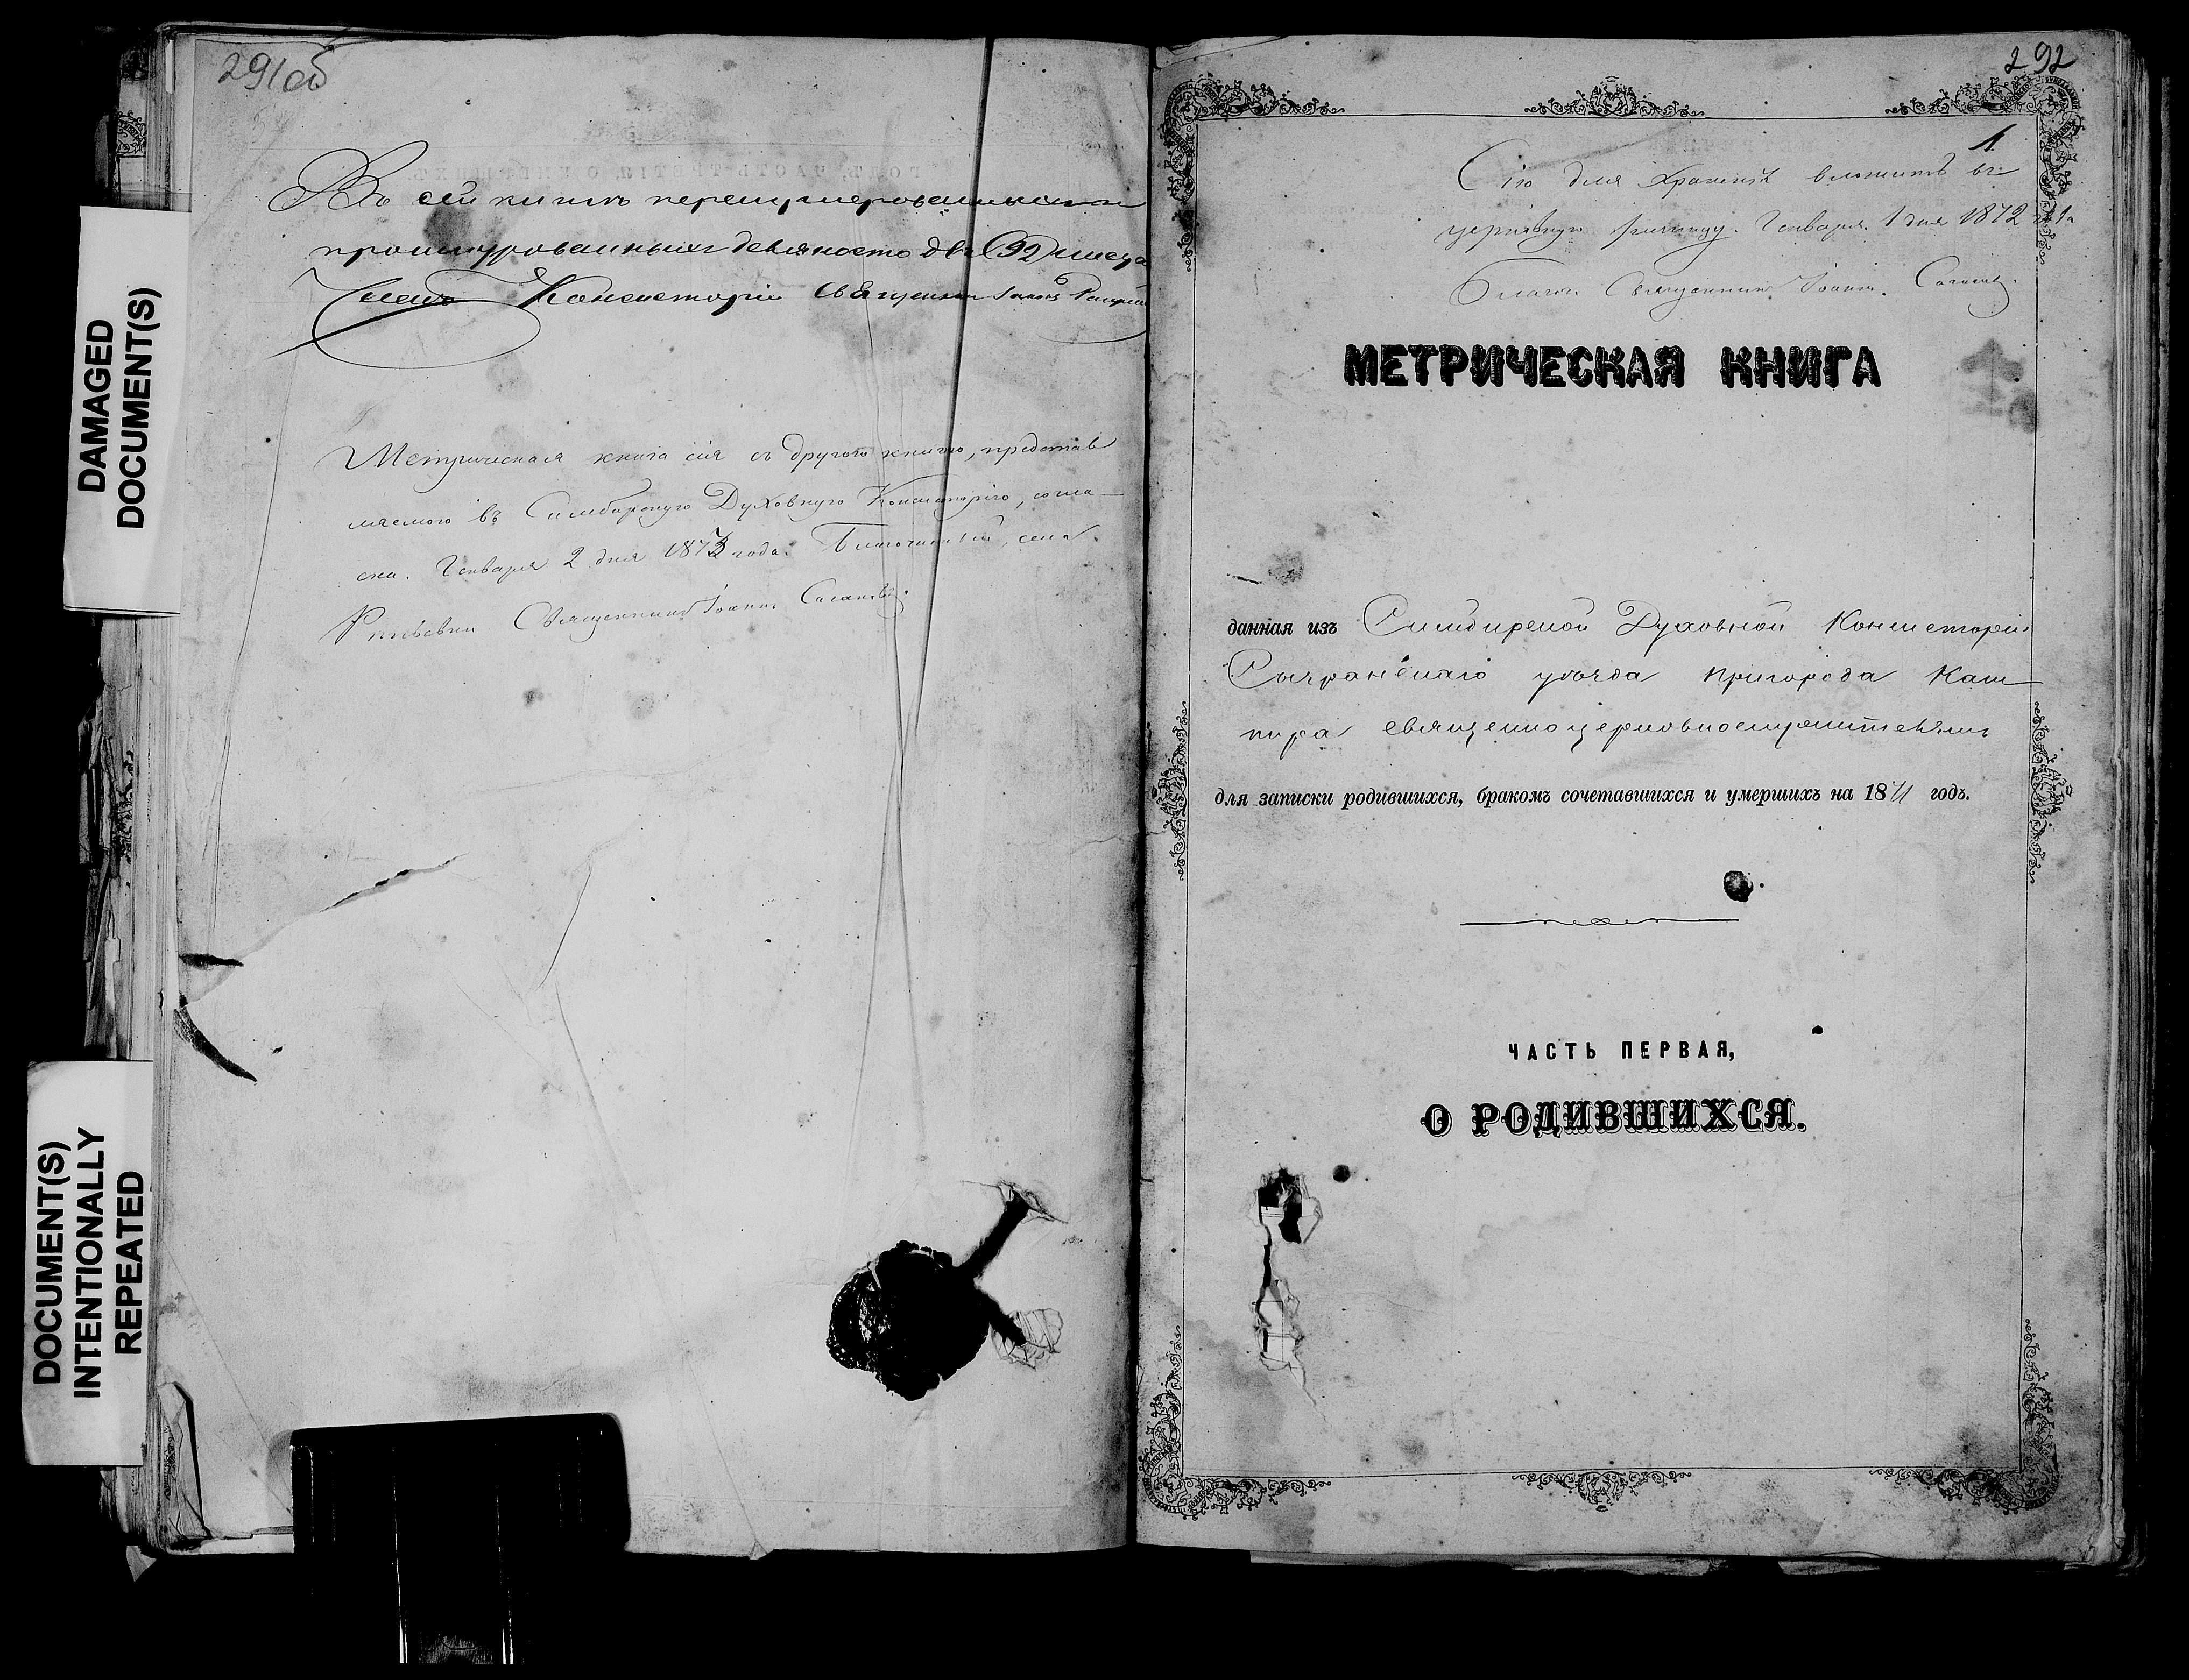 291об
Въ сей книгѣ перенумерованныхъ и
прошнурованныхъ девяносто два (92) листа
Членъ Консисторіи Священникъ Іоаннъ
Метрическая книга сія съ другою книгою, представ
ляемою въ Симбирскую Духовную Консисторію, согла-
сна. Генваря 2 дня 1873 года. Благочинный, села
Рѣпьевки Священникъ Іоаннъ
DAMAGED
DOCUMENT(S)
DOCUMENT(S)
INTENTIONALLY
REPEATED
292
1
Сію для храненія вложить въ
церковную ризницу. Генваря 1 дня 1872 года
Благоч. Священникъ Іоаннъ
МЕТРИЧЕСКАЯ КНИГА
данная изъ Симбирской Духовной Консисторіи
Сызранскаго уѣзда пригорода Каш-
пира священноцерковнослужителямъ
для записки родившихся, бракомъ сочетавшихся и умершихъ на 1871 годъ.
ЧАСТЬ ПЕРВАЯ,
О РОДИВШИХСЯ.